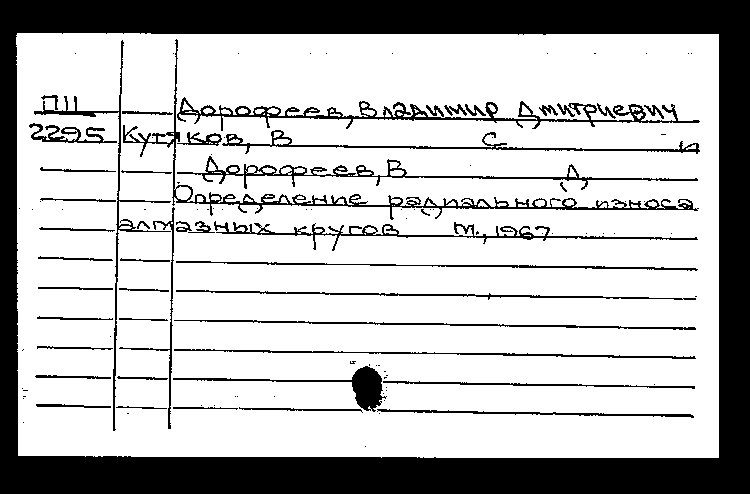 П11 Дорофеев, Владимир Дмитриевич
2295 Кутяков, В С и
Дорофеев, В Д,
Определение радиального износа
алмазных кругов М., 1967